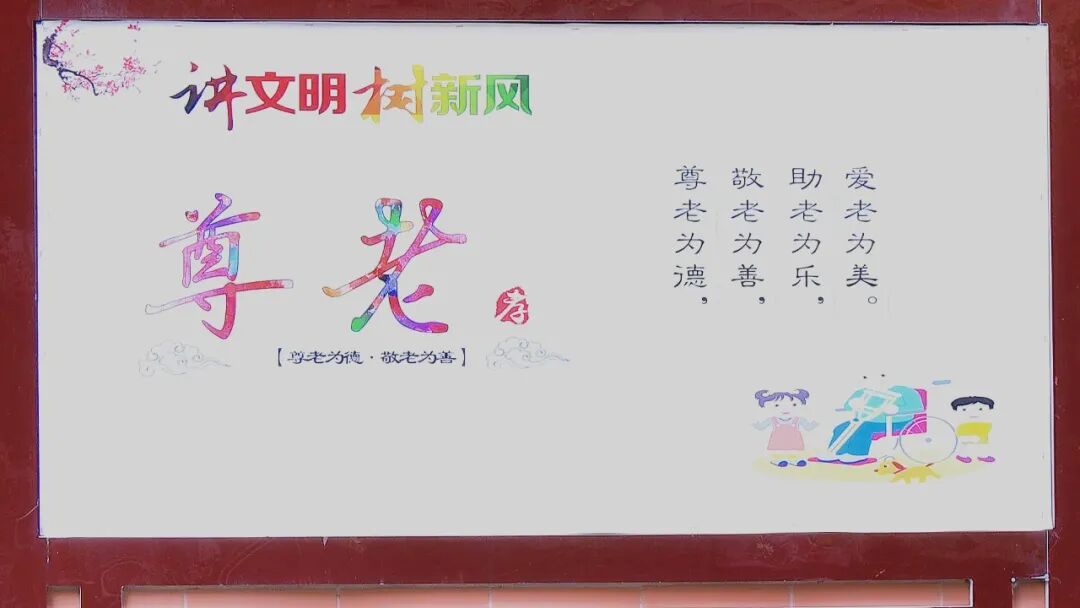 讲文明树新风
尊老
孝
【尊老为德·敬老为善】
尊老为德，
敬老为善，
助老为乐，
爱老为美。